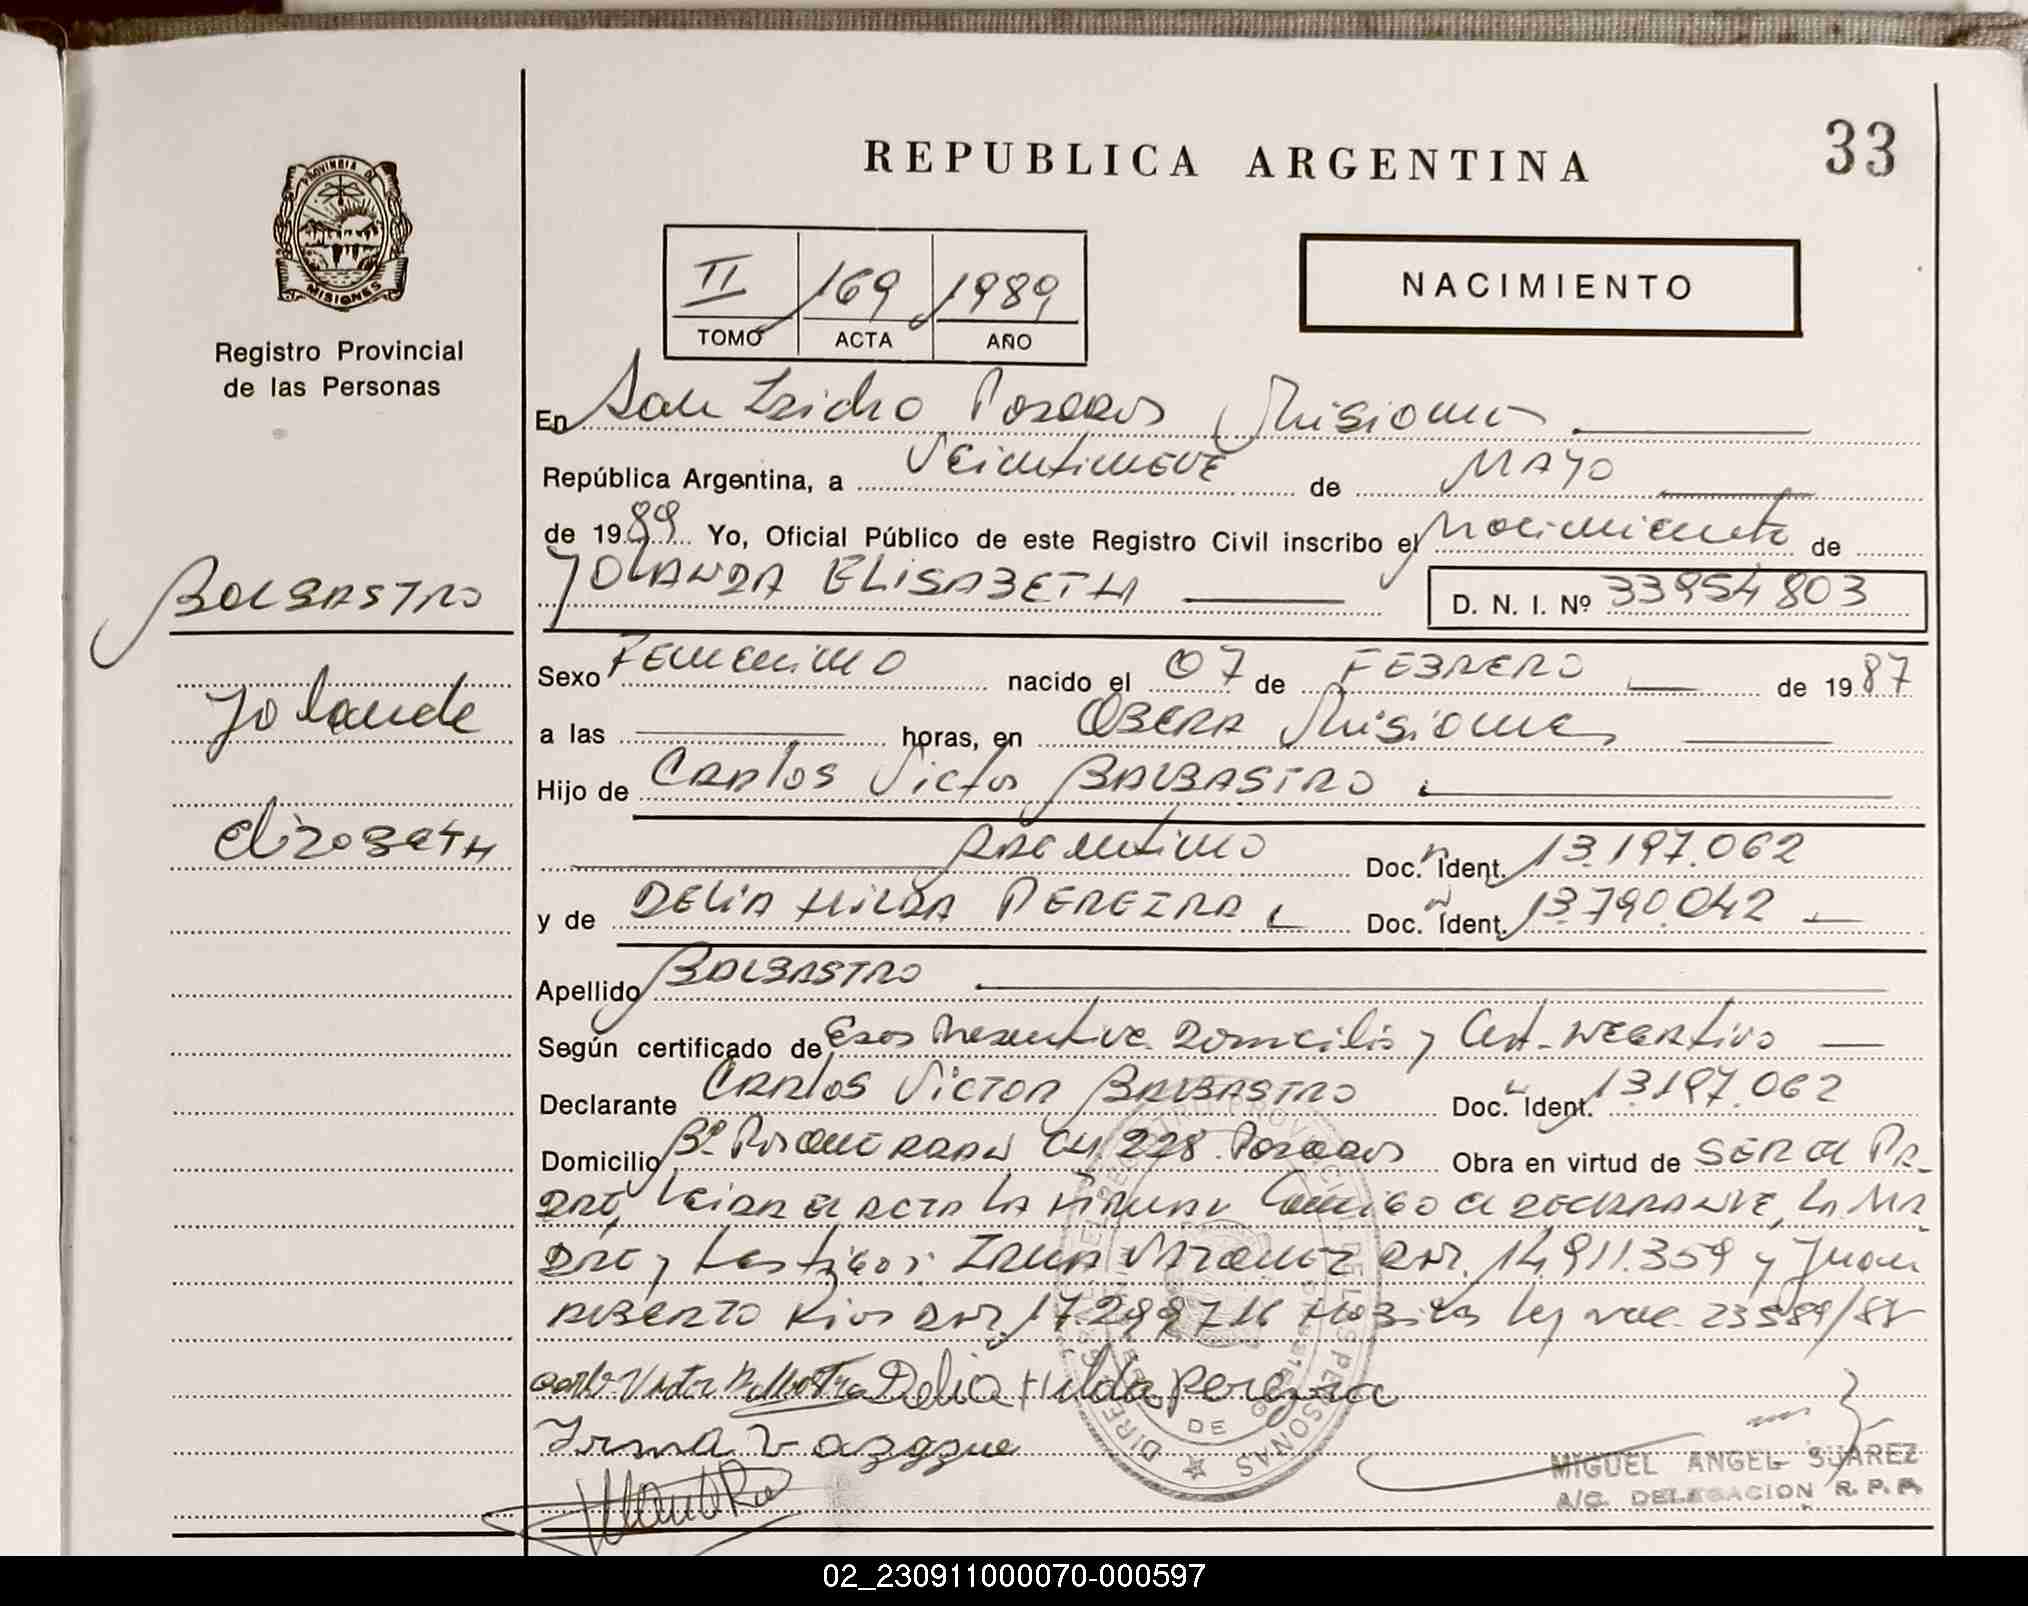 REPUBLICA ARGENTINA
33
PROVINCIA DE
MISIONES
Registro Provincial
de las Personas
II 169 1989
TOMO ACTA AÑO
NACIMIENTO
En San Isidro Posadas Misiones
República Argentina, a Veintinueve de MAYO
de 1989. Yo, Oficial Público de este Registro Civil inscribo el Nacimiento de
YOLANDA ELISABETH
D. N. I. Nº 33954803
BALBASTRO
Yolanda
Elizabeth
Sexo Femenino nacido el 07 de FEBRERO de 1987
a las horas, en OBERA Misiones
Hijo de CARLOS Victor BALBASTRO
ARGentino Doc. Ident. 13.197.062
y de DELIA HILDA PEREIRA Doc. Ident. 13.790.042
Apellido BALBASTRO
Según certificado de Domicilio y Cert. NEGATIVO
Declarante CARLOS VICTOR BALBASTRO Doc. Ident. 13.197.062
Domicilio Bº 228 Posadas Obra en virtud de SER el PA-
DRE, Leida el ACTA LA FIRMAN Conmigo el DECLARANTE, LA MA-
DRE y testigos: IRMA VAZQUEZ DNI. 14.911.359 y Juan
ROBERTO Rios DNI. Ley 23589/88
Victor Delia Hilda pereyra
Irma vazqque
MIGUEL ANGEL SUAREZ
A/C. DELEGACION R. P. P.
02_230911000070-000597